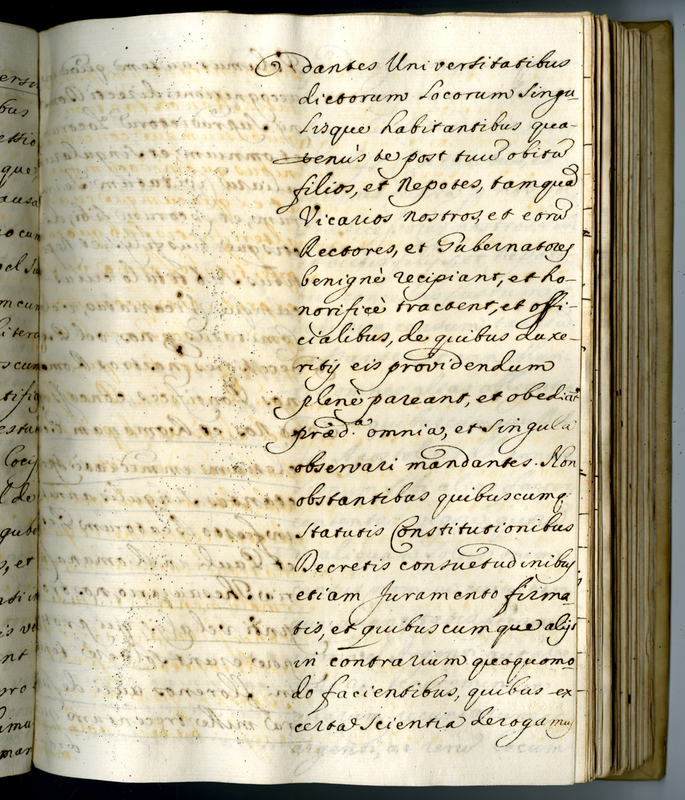 dantes Universitatibus
dictorum Locorum Singu-
lisque habitantibus qua-
tenùs te post tuũ obitũ
filios, et Nepotes, tamquã
Vicarios nostros, et eorũ
Rectores, et Gubernatores
benignè recipiant, et ho-
norificè tractent, et offi-
cialibus, de quibus duxe-
ritis eis providendum
plenè pareant, et obediãt
præd.ᵃ omnia, et Singula
observari mandantes. Non
obstantibus quibuscumq.
Statutis Constitutionibus
Decretis consuetudinibus
etiam Juramento firma-
tis, et quibuscumque alijs
in contrarium quoquomo-
do facientibus, quibus ex
certa Scientia derogamus